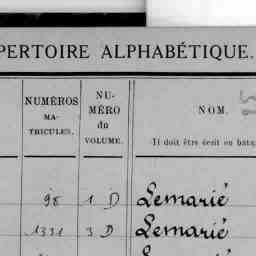 PERTOIRE ALPHABÉTIQUE.
NUMÉROS
MA-
TRICULES.
NU-
MÉRO
du
VOLUME.
NOM.
Il doit être écrit en bata
98 1 D Lemarié
1331 3 D Lemarié